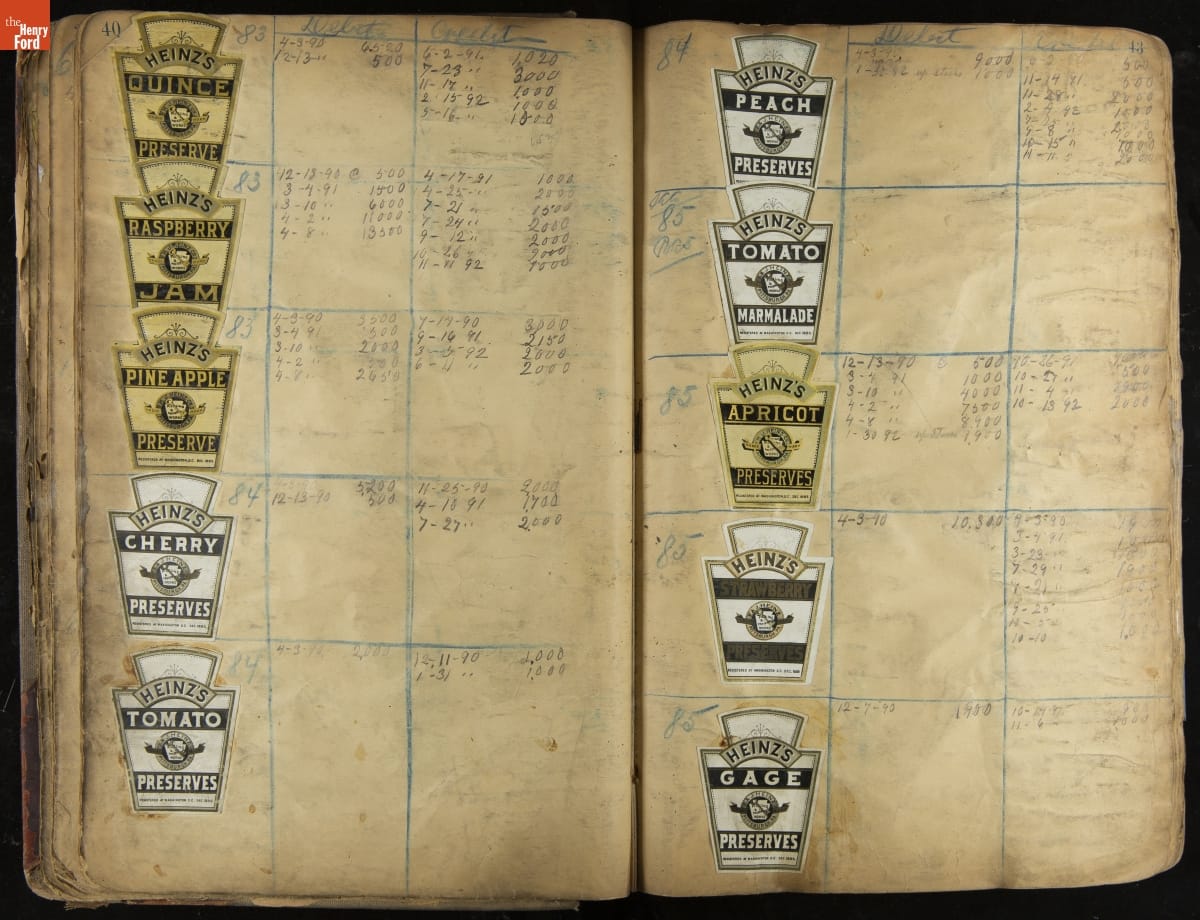 the
Henry
Ford
40
83
Debit
Credit
HEINZ'S
QUINCE
PRESERVE
4-3-90 6520
12-13 " 500
6-2-91 1,020
7-23 " 3000
11-17 " 1000
2-15-92 1000
5-16 "
83
HEINZ'S
RASPBERRY
JAM
12-13-90 @ 500
3-4-91 1500
3-10 " 6000
4-2 " 11000
4-8 " 13500
4-17-91 1000
4-25 " 2000
7-21 " 1500
7-24 " 2000
9-12 " 2000
10-26 " 2000
11-11 92
83
HEINZ'S
PINE APPLE
PRESERVE
REGISTERED AT WASHINGTON, D.C. DEC. 1885.
4-3-90 3500
3-4 91 500
3-10 " 2000
4-2 "
4-8 " 2650
7-14-90 3,000
9-14 91 2150
3-5 92 2000
6-4 " 2000
84
HEINZ'S
CHERRY
PRESERVES
REGISTERED AT WASHINGTON D.C. DEC. 1885.
5,200
12-13-90 500
11-25-90 2000
4-10 91 1,700
7-27 " 2,000
84
HEINZ'S
TOMATO
PRESERVES
REGISTERED AT WASHINGTON D.C. DEC. 1885.
4-3-90 2,000
12-11-90 1,000
1-31 " 1,000
43
84
Debit
HEINZ'S
PEACH
PRESERVES
4-3-90 9000
1-30-92 1000
500
11-14 91 500
11-28 " 2000
1000
9-8 "
10-15 " 1000
11-11 " 2000
85
HEINZ'S
TOMATO
MARMALADE
REGISTERED AT WASHINGTON D.C. DEC. 1885.
85
HEINZ'S
APRICOT
PRESERVES
REGISTERED AT WASHINGTON, D.C. DEC. 1885.
12-13-90 @ 500
3-4 91 1000
3-10 " 4000
4-2 " 7500
4-8 " 8,900
1-30 92 1,900
10-26-91
10-27 " 500
11-4
10-13 92 2000
85
HEINZ'S
STRAWBERRY
PRESERVES
REGISTERED AT WASHINGTON D.C. DEC. 1885
4-3-90 10,300
9-3-90
3-4 91
3-23
7-29 "
9-25
10-10
85
HEINZ'S
GAGE
PRESERVES
REGISTERED AT WASHINGTON D.C. DEC. 1885.
12-7-90
11-6